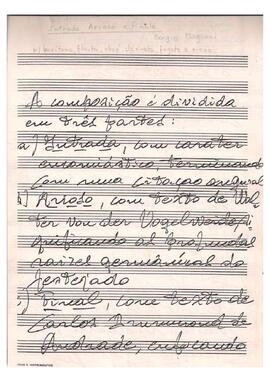 Intrada Arioso e Finale
Sergio Magnani
p/ baritono, flauta, oboé, clarineta, fagote e piano
A composição é dividida
em três partes:
a) Intrada, com caráter
terminando
com uma citação
b) Arioso, com texto de Wal-
ter von der Vogelweide, si-
gnificando as profundas
raizes germânicas do
festejado
c) Final, com texto de
Carlos Drummond de
Andrade, enfocando